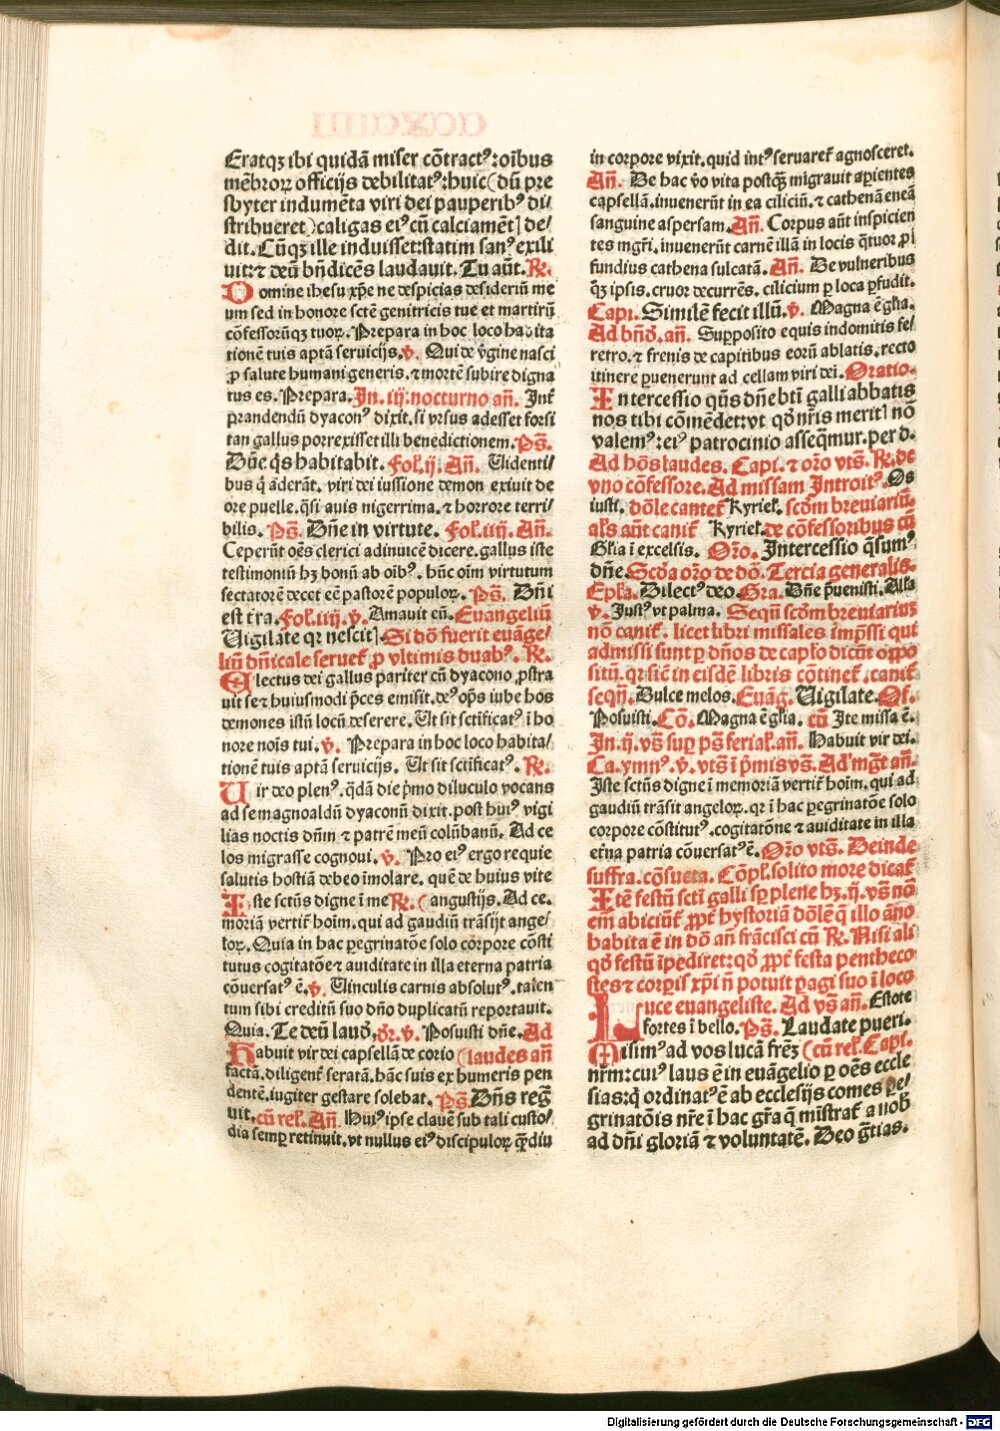 Eratqꝫ ibi quidā miser cōtractꝰ: oībus
mēbroꝝ officijs debilitatꝰ: huic (dū pre
sbyter indumēta viri dei pauperibꝰ di/
stribueret) caligas eiꝰ cū calciamēt] de/
dit. Cūqꝫ ille induisset: statim sanꝰ exili
uit: ⁊ deū bn̄dicēs laudauit. Tu aūt. R̄.
Domine ihesu xp̄e ne despicias desideriū me
um sed in honore sctē genitricis tue et martirū
cōfessorūqꝫ tuoꝝ. Prepara in hoc loco habita
tionē tuis aptā seruicijs. v̄. Qui de v̄gine nasci
ꝓ salute humani generis. ⁊ mortē subire digna
tus es. Prepara. In. iij: nocturno an̄. Int̄
prandendū dyaconꝰ dixit. si vrsus adesset forsi
tan gallus porrexisset illi benedictionem. Ps̄.
Dn̄e q̄s habitabit. Fol. ij. An̄. Uidenti/
bus q̄ aderāt. viri dei iussione demon exiuit de
ore puelle. q̄si auis nigerrima. ⁊ horrore terri/
bilis. Ps̄. Dn̄e in virtute. Fol. iiij. An̄.
Ceperūt oēs clerici adinuicē dicere. gallus iste
testimoniū hꝫ bonū ab oībꝰ. hūc oīm virtutum
sectatorē decet eē pastorē populoꝝ. Ps̄. Dn̄i
est t̄ra. Fol. iiij. v̄. Amauit eū. Euangeliū
Uigilate qꝛ nescit]. Si dō fuerit euāge/
liū dn̄icale seruet̄ ꝓ vltimis duabꝰ. R̄.
Electus dei gallus pariter cū dyacono, ꝓstra
uit se ⁊ huiusmodi p̄ces emisit. deꝰ op̄s iube hos
demones istū locū deserere. Ut sit sctificatꝰ ī ho
nore noīs tui. v̄. Prepara in hoc loco habita/
tionē tuis aptā seruicijs. Ut sit sctificatꝰ. R̄.
Uir deo plenꝰ. q̄dā die p̄mo diluculo vocans
ad se magnoaldū dyaconū dixit. post huiꝰ vigi
lias noctis dn̄m ⁊ patrē meū colūbanū. Ad ce
los migrasse cognoui. v̄. Pro eiꝰ ergo requie
salutis hostiā debeo īmolare. quē de huius vite
Iste sctūs digne ī me R̄. ( angustijs. Ad ce.
moriā vertit̄ hoīm. qui ad gaudiū trāsijt ange/
loꝝ. Quia in hac pegrinatōe solo corpore cōsti
tutus cogitatōe ⁊ auiditate in illa eterna patria
cōuersatꝰ ē. v̄. Uinculis carnis absolutꝰ. talen
tum sibi creditū suo dn̄o duplicatū reportauit.
Quia. Te deū laud̄. ōr. v̄. Posuisti dn̄e. Ad
Habuit vir dei capsellā de corio (laudes an̄
factā. diligent̄ seratā. hāc suis ex humeris pen
dentē. iugiter gestare solebat. Ps̄. Dn̄s reḡ
uit. cū rel. An̄. Huiꝰ ipse clauē sub tali custo/
dia semꝑ retinuit. vt nullus eiꝰ discipuloꝝ q̄diu
in corpore vixit. quid intꝰ seruaret̄ agnosceret.
An̄. De hac v̄o vita postqꝫ migrauit apientes
capsellā. inuenerūt in ea ciliciū. ⁊ cathenā eneā
sanguine aspersam. An̄. Corpus aūt inspicien
tes mgr̄i. inuenerūt carnē illā in locis q̄tuor ꝓ
fundius cathena sulcatā. An̄. De vulneribus
q̄ꝫ ipsis. cruor decurrēs. cilicium ꝑ loca ꝑfudit.
Capi. Similē fecit illū. v̄. Magna ē gl̄ia.
Ad bn̄d̄. an̄. Supposito equis indomitis fe/
retro. ⁊ frenis de capitibus eorū ablatis. recto
itinere ꝑuenerunt ad cellam viri dei. Oratio.
Intercessio qn̄s dn̄e bt̄i galli abbatis
nos tibi cōmēdet: vt qd̄ nr̄is merit] nō
valemꝰ: eiꝰ patrocinio asseq̄mur. per d.
Ad hōs laudes. Capi. ⁊ or̄o vts̄. R̄. de
vno cōfessore. Ad missam Introitꝰ. Os
iusti. dōle cantet̄ Kyriel. scd̄m breuiariū.
al's aūt canit̄ Kyriel. de cōfessoribus cū
Gl̄ia ī excelsis. Or̄o. Intercessio q̄sumꝰ
dn̄e. Scd̄a or̄o de dō. Tercia generalis.
Epl̄a. Dilectꝰ deo. Gra. Dn̄e p̄uenisti. All̄a
v̄. Justꝰ vt palma. Seqn̄ scd̄m breuiarius
nō canit̄. licet libri missales imp̄ssi qui
admissi sunt ꝑ dn̄os de cap̄lo dicūt oppo
sitū. qꝛ sic̄ in eisdē libris cōtinet̄. canit̄
seqn̄. Dulce melos. Euāg. Uigilate. Of.
Posuisti. Cō. Magna ē gl̄ia. cū Ite missa ē.
In. ij. vs̄ sup ps̄ ferial. an̄. Habuit vir dei.
Ca. ymnꝰ. v̄. vts̄ ī p̄mis vs̄. Ad mḡt an̄.
Iste sctūs digne ī memoriam vertit̄ hoīm. qui ad
gaudiū trāsit angeloꝝ. qꝛ ī hac pegrinatōe solo
corpore cōstitutꝰ. cogitatōne ⁊ auiditate in illa
et̄na patria cōuersatꝰ ē. Or̄o vts̄. Deinde
suffra. cōsueta. Cōpl. solito more dicat̄
Itē festū sct̄i galli sꝑ plene hꝫ. ij. vs̄ nō
em̄ abiciūt̄ ꝓpt̄ hystoriā dōlē q̄ illo an̄o
habita ē in dō an̄ frācisci cū R̄. Nisi ali
qd̄ festū īpediret: qd̄ ꝓpt̄ festa pentheco
stes ⁊ corpis xp̄i n̄ potuit pagi suo ī loco
Luce euangeliste. Ad vs̄ an̄. Estote
fortes ī bello. Ps̄. Laudate pueri.
Misimꝰ ad vos lucā frēꝫ (cū rel. Capi.
nr̄m: cuiꝰ laus ē in euāgelio ꝑ oēs eccle
sias: q̄ ordinatꝰ ē ab ecclesijs comes pe/
grinatōis nr̄e ī hac gr̄a q̄ mīstrat̄ a nob
ad dn̄i gloriā ⁊ voluntatē. Deo gr̄tias.
Digitalisierung gefördert durch die Deutsche Forschungsgemeinschaft - DFG